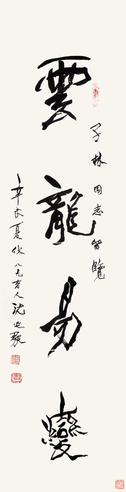 雲龍易變
子林同志留覽
辛亥夏伏八九老人沈迈士